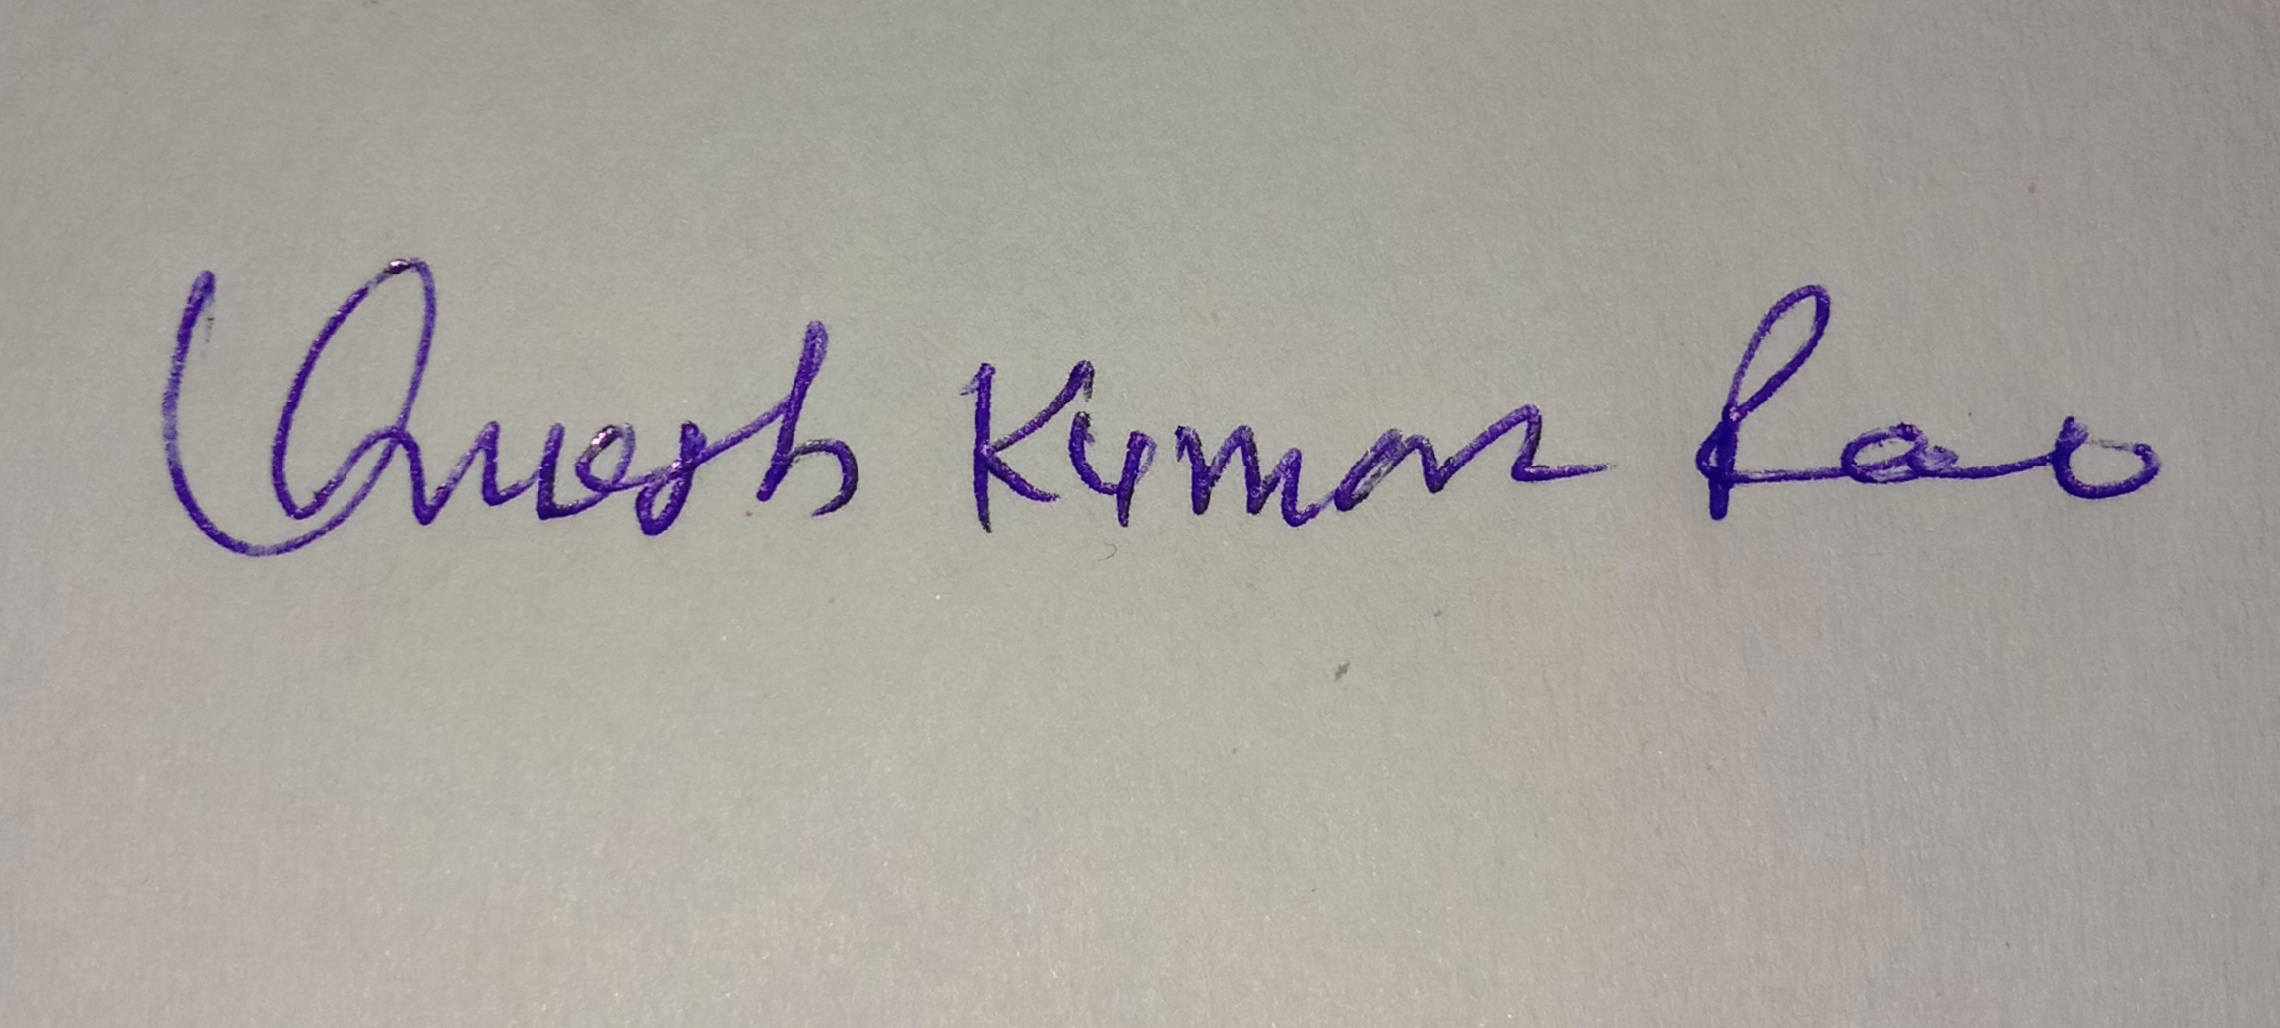 Umesh Kumar Rao